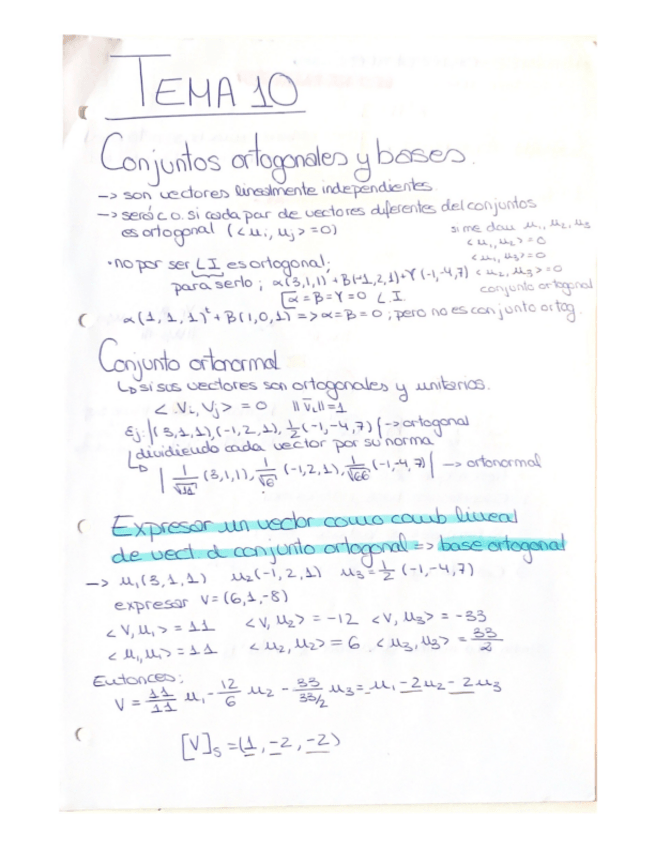 TEMA 10
Conjuntos ortogonales y bases.
-> son vectores linealmente independientes.
-> será c.o. si cada par de vectores diferentes del conjuntos
es ortogonal (<ui, uj> = 0)
si me dan u1, u2, u3
<u1, u2> = 0
<u1, u3> = 0
<u2, u3> = 0
conjunto ortogonal
·no por ser LI es ortogonal;
para serlo; α(3,1,1) + B(-1,2,1) + γ(-1,-4,7)
[α = B = γ = 0 L.I.
α(1,1,1) + B(1,0,1) => α = B = 0; pero no es conjunto ortog.
Conjunto ortonormal
↳ si sus vectores son ortogonales y unitarios.
<Vi, Vj> = 0 ||Vi|| = 1
Ej: |(3,1,1), (-1,2,1), 1/2(-1,-4,7)| -> ortogonal
dividiendo cada vector por su norma
↳ | 1/√11 (3,1,1), 1/√6 (-1,2,1), 1/√66 (-1,-4,7)| -> ortonormal
Expresar un vector como comb lineal
de vect. d conjunto ortogonal => base ortogonal
-> u1(3,1,1) u2(-1,2,1) u3 = 1/2 (-1,-4,7)
expresar V = (6,1,-8)
<V, u1> = 11 <V, u2> = -12 <V, u3> = -33
<u1, u1> = 11 <u2, u2> = 6 <u3, u3> = 33/2
Entonces:
V = 11/11 u1 - 12/6 u2 - 33/33/2 u3 = u1 - 2u2 - 2u3
[V]s = (1, -2, -2)